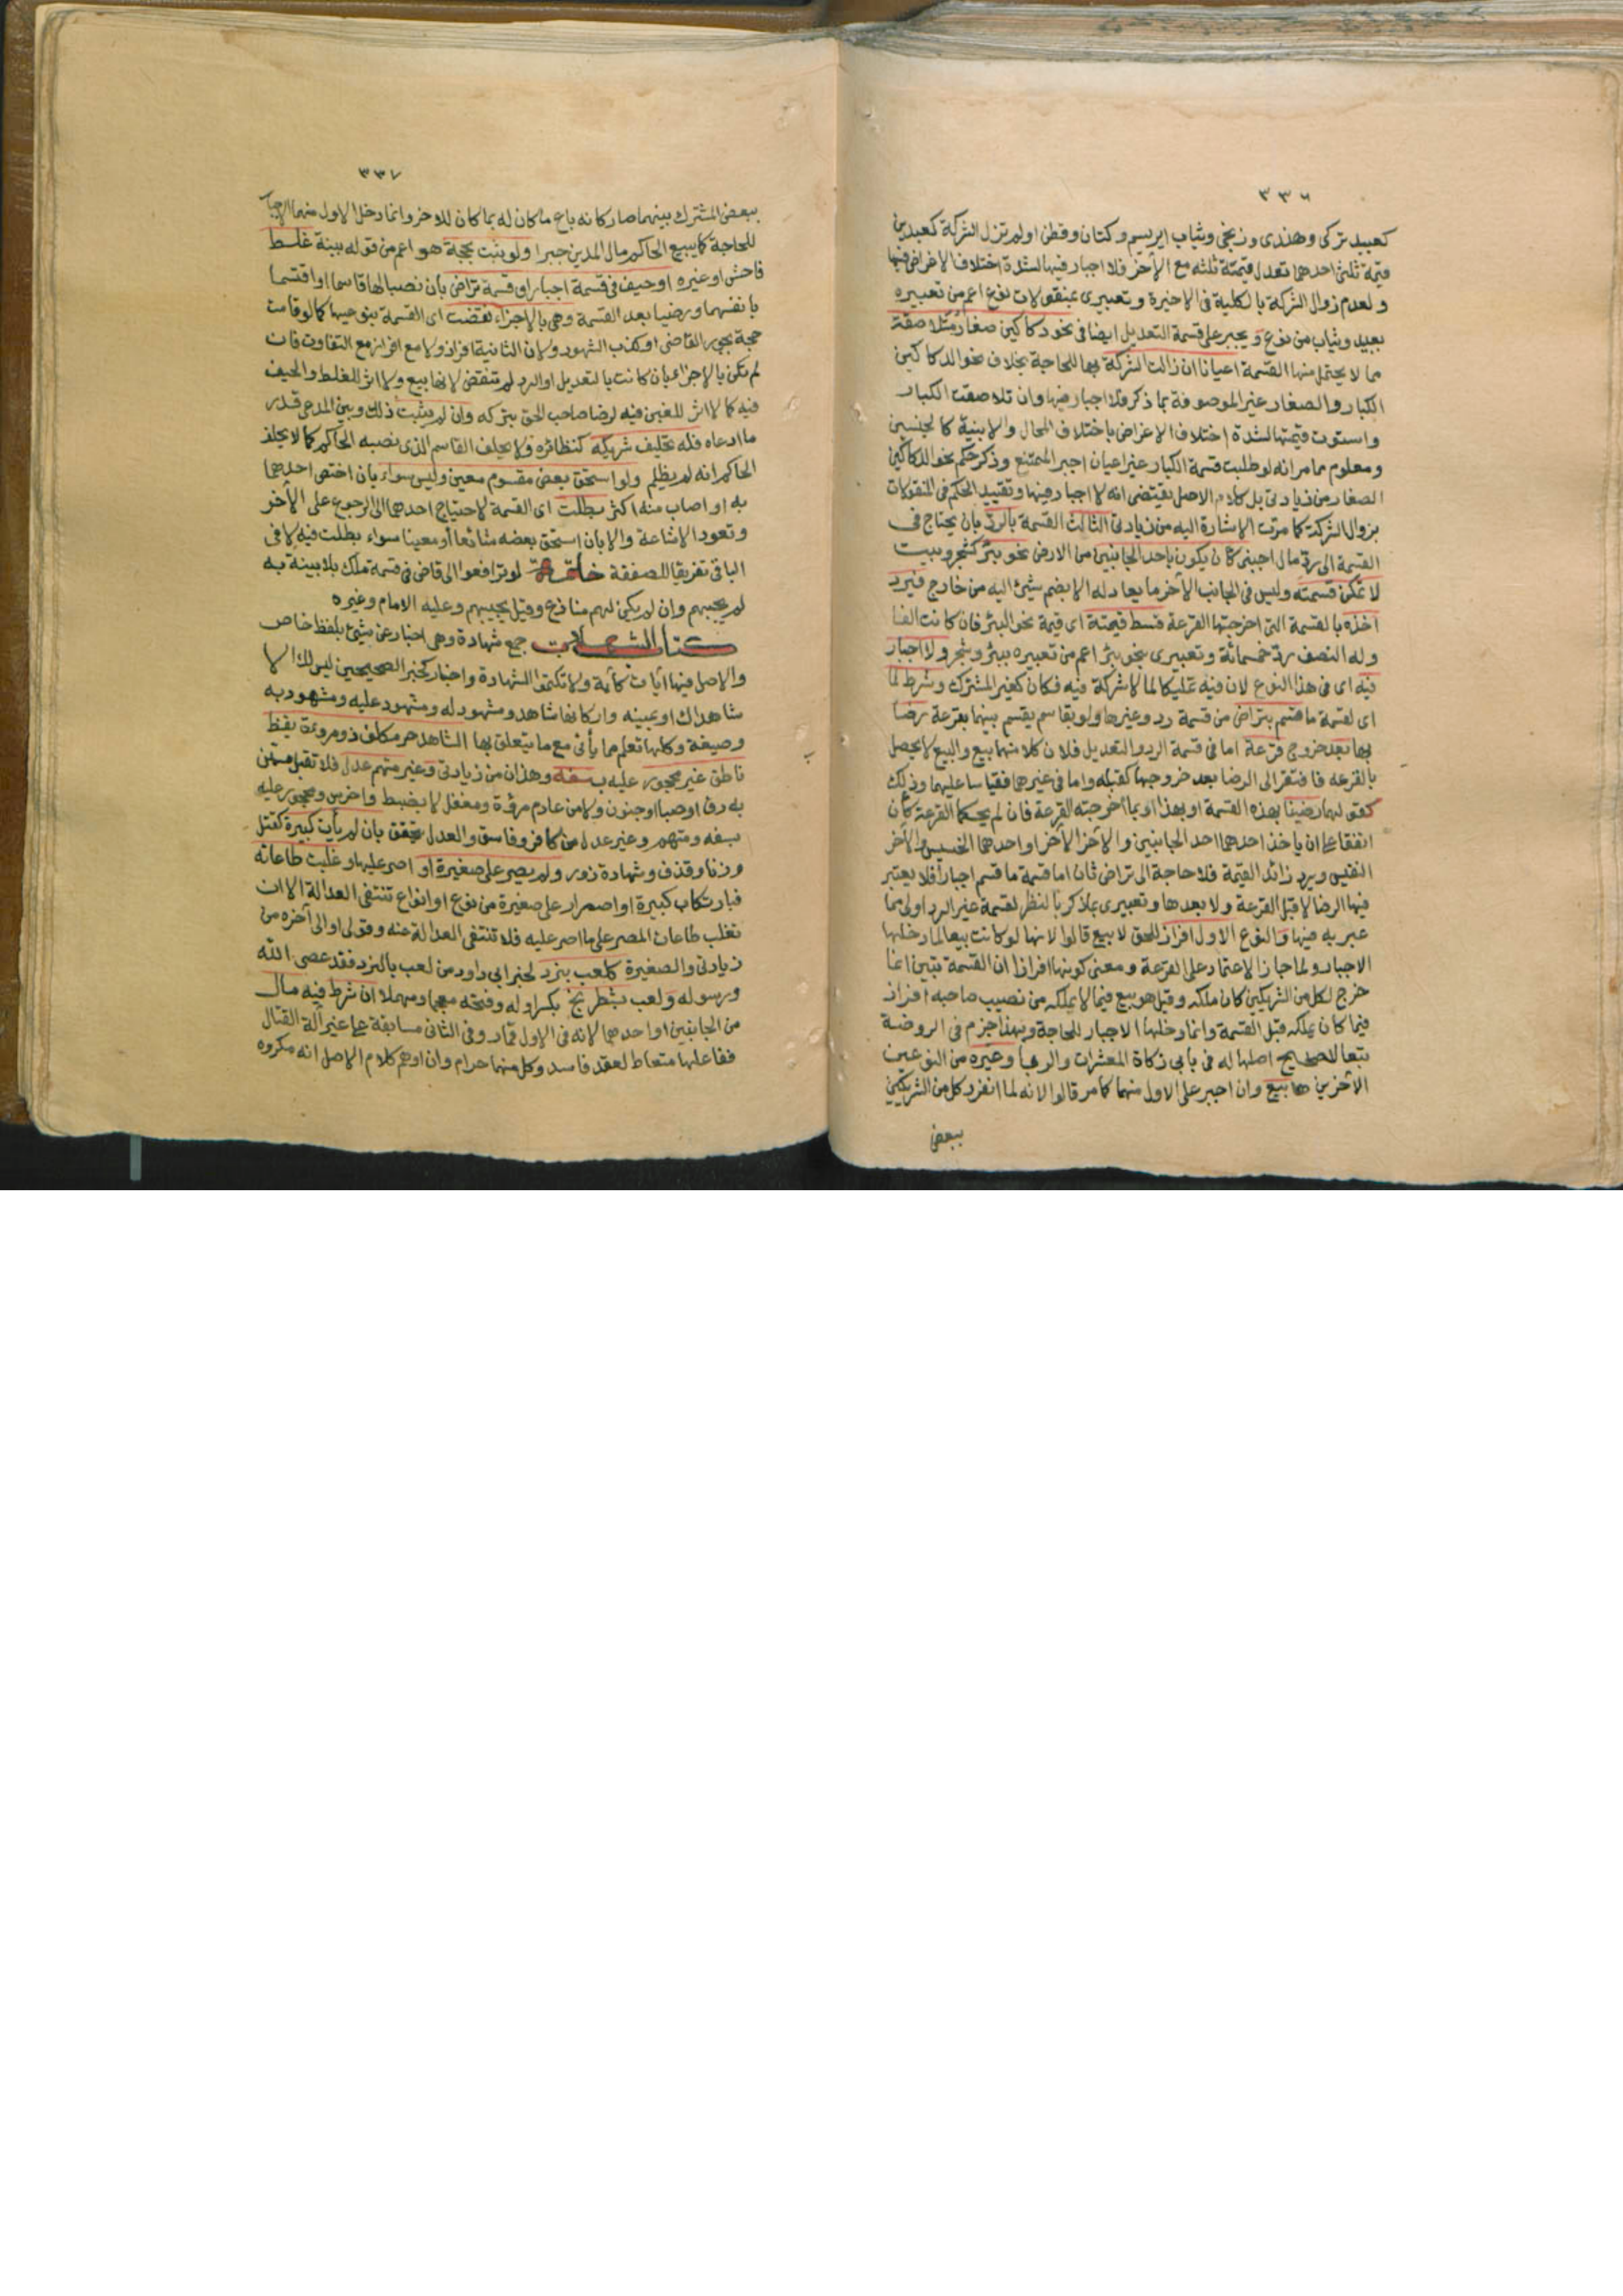 ٣٣٦
كعبيد تركى وهندى وزنجى وثياب ابريسم وكتان وقطن او لم تزل الشركة كعبدين
قيمة ثلثى احدهما تعدل قيمة ثلثه مع الآخر فلا اجبار فيها لشدة اختلاف الاغراض فيها
ولعدم زوال الشركة بالكلية فى الاخيرة وتعبيرى بمنقولات نوع اعم من تعبيره
بعبيد وثياب من نوع ويجبر على قسمة التعديل ايضا فى نحو دكاكين صغار متلاصقة
مما لا يحتمل منها القسمة اعيانا ان زالت الشركة بها للحاجة بخلاف نحو الدكاكين
الكبار والصغار غير الموصوفة بما ذكر فلا اجبار فيها وان تلاصقت الكبار
واستوت قيمتها لشدة اختلاف الاغراض باختلاف المحال والابنية كالجنسين
ومعلوم مما مر انه لو طلبت قسمة الكبار غير اعيان اجبر الممتنع وذكر حكم نحو الدكاكين
الصغار من زيادتى بل كلام الاصل يقتضى انه لا اجبار فيها وتقييد الحكم فى المنقولات
بزوال الشركة كما مرت الاشارة اليه من زيادتى الثالث القسمة بالرد بان يحتاج فى
القسمة الى رد مال اجبنى كان يكون باحد الجانبين من الارض نحو بئر كشجر وبيت
لا تمكن قسمته وليس فى الجانب الآخر ما يعادله الا بضم شئ اليه من خارج فيرد
آخذه بالقسمة التى اخرجتها القرعة قسط قيمته اى قيمة نحو البئر فان كانت الفا
وله النصف رد خمسمائة وتعبيرى بنحو بئر اعم من تعبيره ببئر وشجر ولا اجبار
فيه اى فى هذا النوع لان فيه تمليكا لما لا شركة فيه فكان كغير المشترك وشرط لما
اى لقسمة ما قسم بتراض من قسمة رد وغيرها ولو بقاسم يقسم بينهما بقرعة رضا
بها بعد خروج قرعة اما فى قسمة الرد والتعديل فلان كلا منهما بيع والبيع لا يحصل
بالقرعة فافتقر الى الرضا بعد خروجها كقبله واما فى غيرهما فقياسا عليهما وذلك
كقولهما رضينا بهذه القسمة او بهذا او بما اخرجته القرعة فان لم يحكما القرعة كأن
اتفقا على ان ياخذ احدهما احد الجانبين والآخر الآخر او احدهما الخسيس والآخر
النفيس ويرد زائد القيمة فلا حاجة الى تراض ثان اما قسمة ما قسم اجبارا فلا يعتبر
فيها الرضا لا قبل القرعة ولا بعدها وتعبيرى بما ذكر بالنظر لقسمة غير الرد اولى مما
عبر به فيها والنوع الاول افراز للحق لا بيع قالوا لانها لو كانت بيعا لما دخلها
الاجبار ولما جاز الاعتماد على القرعة ومعنى كونها افرازا ان القسمة تبين ان ما
خرج لكل من الشريكين كان ملكه وقيل هو بيع فيما لا يملكه من نصيب صاحبه افراز
فيما كان يملكه قبل القسمة وانما دخلها الاجبار للحاجة وبهذا جزم فى الروضة
تبعا لتصحيح اصلها له فى بابى زكاة المعشرات والربا وغيره من النوعين
الآخرين هما بيع وان اجبر على الاول منهما كما مر قالوا لانه لما انفرد كل من الشريكين
ببعض
٣٣٧
ببعض المشترك بينهما صار كانه باع ما كان له بما كان للآخر وانما دخل الاول منهما الاجبار
للحاجة كما يبيع الحاكم مال المدين جبرا ولو ثبت بحجة هو اعم من قوله ببينة غلط
فاحش او غيره او حيف فى قسمة اجبار او قسمة تراض بان نصبا لها قاسما او اقتسما
بانفسهما ورضيا بعد القسمة وهى بالاجزاء نقضت اى القسمة بنوعيها كما لو قامت
حجة بجور القاضى او كذب الشهود ولان الثانية افراز ولا مع افراز مع التفاوت فان
لم تكن بالاجزاء بان كانت بالتعديل او الرد لم تنقض لانها بيع ولا اثر للغلط والحيف
فيه كما لا اثر للغبن فيه لرضا صاحب الحق بتركه وان لم يثبت ذلك وبين المدعى قدر
ما ادعاه فله تحليف شريكه كنظائره ولا يحلف القاسم الذى نصبه الحاكم كما لا يحلف
الحاكم انه لم يظلم ولو استحق بعض مقسوم معين وليس سواء بان اختص احدهما
به او اصاب منه اكثر بطلت اى القسمة لاحتياج احدهما الى الرجوع على الآخر
وتعود الاشاعة والا بان استحق بعضه شائعا او معينا سواء بطلت فيه لا فى
الباقى تفريقا للصفقة خاتمة لو ترافعوا الى قاض فى قسمة ملك بلا بينة به
لم يجبهم وان لم يكن لهم منازع وقيل يجيبهم وعليه الامام وغيره
كتاب الشهادات جمع شهادة وهى اخبار عن شئ بلفظ خاص
والاصل فيها آيات كآية ولا تكتموا الشهادة واخبار كخبر الصحيحين ليس لك الا
شاهداك او يمينه واركانها شاهد ومشهود له ومشهود عليه ومشهود به
وصيغة وكلها تعلم مما يأتى مع ما يتعلق بها الشاهد حر مكلف ذو مروءة يقظ
ناطق غير محجور عليه بسفه وهذان من زيادتى وغير متهم عدل فلا تقبل ممن
به رق او صبا او جنون ولا من عادم مروءة ومغفل لا يضبط واخرس ومحجور عليه
بسفه ومتهم وغير عدل من كافر وفاسق والعدل يتحقق بان لم يأت كبيرة كقتل
وزنا وقذف وشهادة زور ولم يصر على صغيرة او اصر عليها وغلبت طاعاته
فبارتكاب كبيرة او اصرار على صغيرة من نوع او انواع تنتفى العدالة الا ان
تغلب طاعات المصر على ما اصر عليه فلا تنتفى العدالة عنه وقولى او الى آخره من
زيادتى والصغيرة كلعب بنرد لخبر ابى داود من لعب بالنرد فقد عصى الله
ورسوله ولعب بشطرنج بكسر اوله وفتحه معجما ومهملا ان شرط فيه مال
من الجانبين او احدهما لانه فى الاول قمار وفى الثانى مسابقة على غير آلة القتال
ففاعلها متعاط لعقد فاسد وكل منهما حرام وان اوهم كلام الاصل انه مكروه